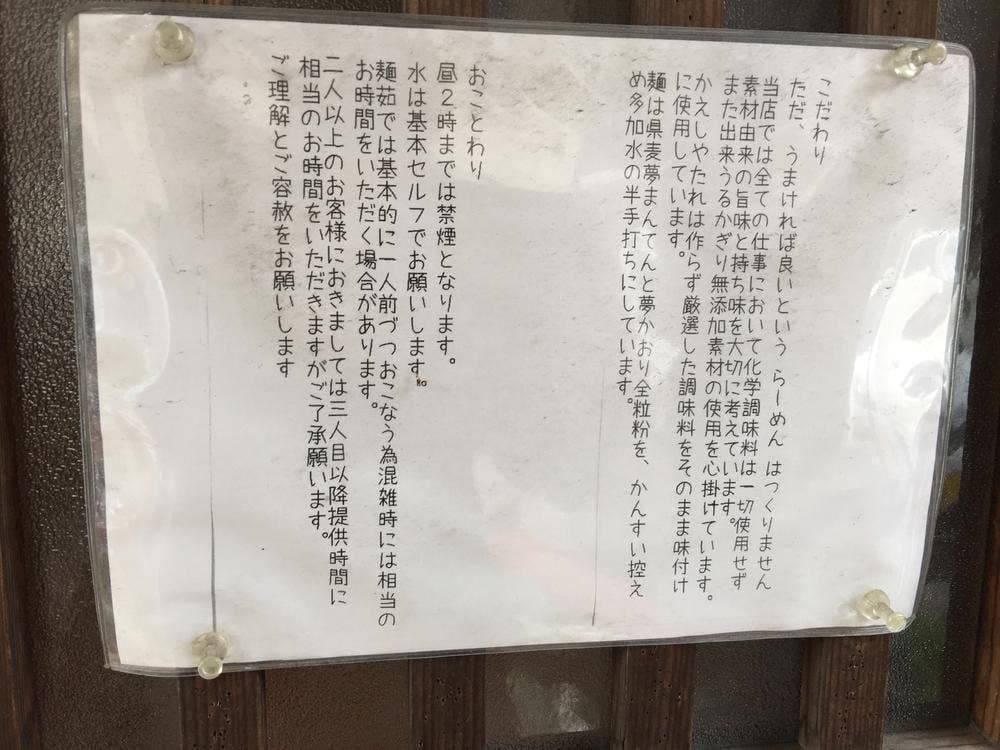 こだわり
ただ、うまければ良いという らーめん はつくりません
当店では全ての仕事において化学調味料は一切使用せず
素材由来の旨味と持ち味を大切に考えています。
また出来うるかぎり無添加素材の使用を心掛けています。
かえしやたれは作らず厳選した調味料をそのまま味付け
に使用しています。
麺は県麦夢まんてんと夢かおり全粒粉を、かんすい控え
め多加水の半手打ちにしています。
おことわり
昼２時までは禁煙となります。
水は基本セルフでお願いします。
麺茹では基本的に一人前づつおこなう為混雑時には相当の
お時間をいただく場合があります。
二人以上のお客様におきましては三人目以降提供時間に
相当のお時間をいただきますがご了承願います。
ご理解とご容赦をお願いします
。。